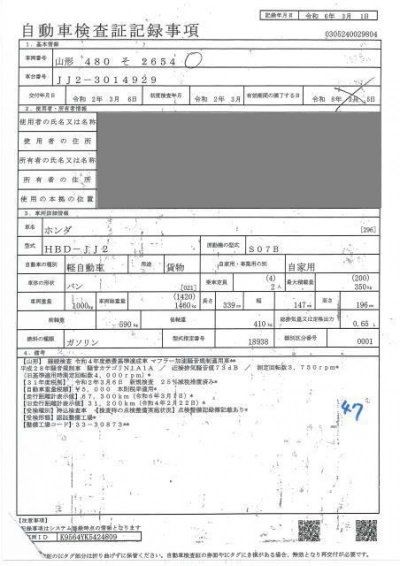 記録年月日 令和 6年 3月 1日
自動車検査証記録事項
0305240029804
1．基本情報
車両番号 山形 480 そ 2654
車台番号 JJ2-3014929
交付年月日 令和 2年 3月 6日 初度検査年月 令和 2年 3月 有効期間の満了する日 令和 8年 3月 5日
2．使用者・所有者情報
使用者の氏名又は名称
使用者の住所
所有者の氏名又は名称
所有者の住所
使用の本拠の位置
3．車両詳細情報
車名 ホンダ [296]
型式 HBD-JJ2 原動機の型式 S07B
自動車の種別 軽自動車 用途 貨物 自家用・事業用の別 自家用
車体の形状 バン [021] 乗車定員 (4) 2人 最大積載量 (200) 350kg
車両重量 1000kg 車両総重量 (1420) 1460kg 長さ 339cm 幅 147cm 高さ 196cm
前軸重 590kg 後軸重 410kg 総排気量又は定格出力 0.65 L
燃料の種類 ガソリン 型式指定番号 18938 類別区分番号 0001
4．備考
[山形] 継続検査 令和4年度燃費基準達成車 マフラー加速騒音規制適用車*
平成28年騒音規制車 騒音カテゴリN1A1A / 近接排気騒音値73dB / 測定回転数3,750rpm*
[旧基準適用時測定回転数4,000rpm]*
[31年度税制] 令和2年3月6日 新規検査 25%軽減措置済み*
[自動車重量税額] ¥5,000 本則税率適用*
[走行距離計表示値] 67,300km (令和6年3月1日)*
[旧走行距離計表示値] 31,200km (令和4年2月22日)*
[受検種別] 持込検査車 [検査時の点検整備実施状況] 点検整備記録簿記載あり*
[受検形態] 認証整備工場*
[整備工場コード] 33-30873*
47
[注意事項]
記録事項はシステム登録時点の情報となります
車両ID K9564YK5424609